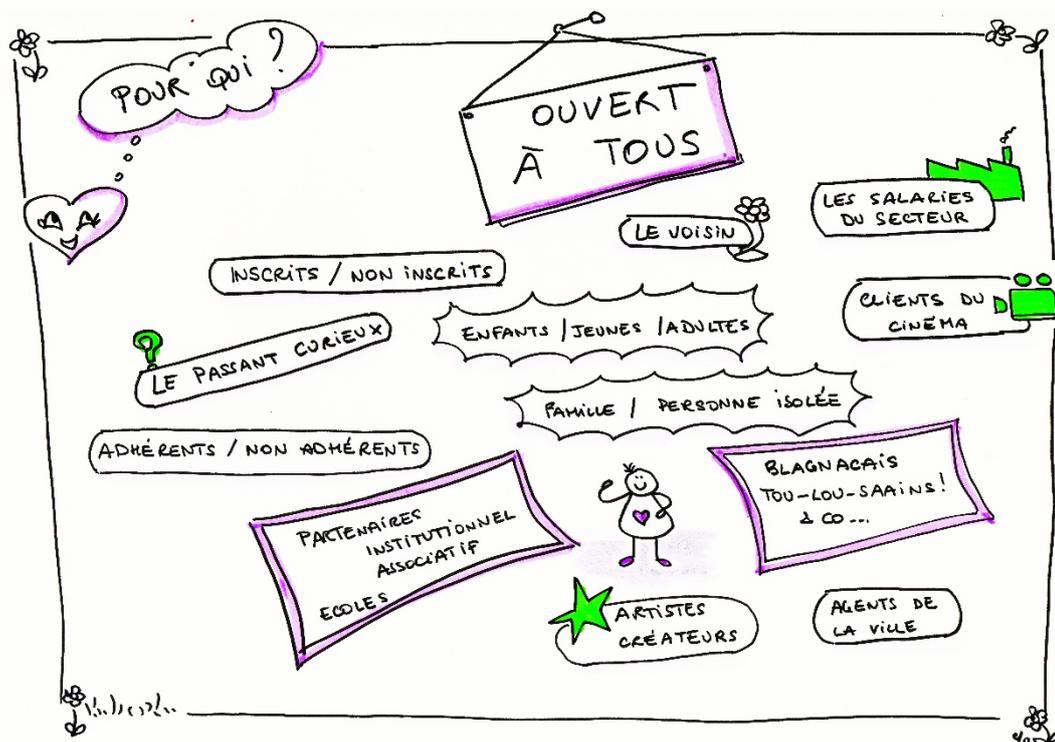 POUR QUI ?
OUVERT
À TOUS
LES SALARIES
DU SECTEUR
LE VOISIN
INSCRITS / NON INSCRITS
CLIENTS DU
CINÉMA
ENFANTS / JEUNES / ADULTES
LE PASSANT CURIEUX
FAMILLE / PERSONNE ISOLÉE
ADHÉRENTS / NON ADHÉRENTS
BLAGNACAIS
TOU-LOU-SAAINS !
& CO ...
PARTENAIRES
INSTITUTIONNEL
ASSOCIATIF
ECOLES
ARTISTES
CRÉATEURS
AGENTS DE
LA VILLE